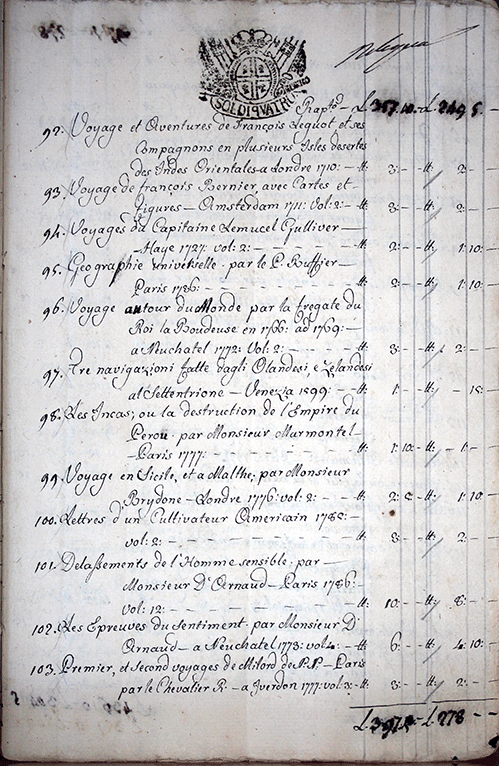 SOLDI QVATRO
Rapto - L 357.10 - L 249 5 -
92. Voyage et Aventures de François Leguot et ses
Compagnons en plusieurs Isles desertes
des Indes Orientales - a Londre 1710: - #: 3: - #: 2: -
93. Voyage de françois Bernier, avec Cartes et
Figures - Amsterdam 1711: Vol: 2: - #: 3: - #: 2: -
94. Voyages du Capitaine Lemucel Gulliver -
- Haye 1727: vol: 2: - #: 2: - #: 1: 10: -
95. Geographie univerielle par le P. Buffier -
Paris 1786: - #: 2: - #: 1: 10: -
96. Voyage autour du Monde par la fregate du
Roi la Boudeuse en 1766: ad 1769: -
a Neuchatel 1772: Vol: 2: - #: 3: - #: 2: -
97. Tre navigazioni fatte dagli Olandesi, e Zelandesi
al Settentrione - Venezia 1599: - #: 1: - #: - 15: -
98. Les Incas; ou la destruction de l'Empire du
Perou par Monsieur Marmontel -
- Paris 1777: - #: 1: 10: - #: - 1: -
99. Voyage en Sicile, et a Malthe, par Monsieur
Brydone - Londre 1776: vol: 2: - #: 2: - #: 1: 10 -
100. Lettres d'un Cultivateur Americain 1785: -
vol: 2: - #: 3: - #: 2: -
101. Delassements de l'Homme sensible par -
Monsieur D'Arnaud - Paris 1786:
Vol: 12: - #: 10: - #: 8: -
102. Les Epreuves du Sentiment par Monsieur D'
Arnaud - a Neuchatel 1773: vol: 4: - #: 6: - #: 4: 10: -
103. Premier, et Second voyages de Milord de - Paris
par le Chevalier R: - a Jverdon 1777: vol: 3: - #: 3: - #: 2: -
L 397 - L 278 -